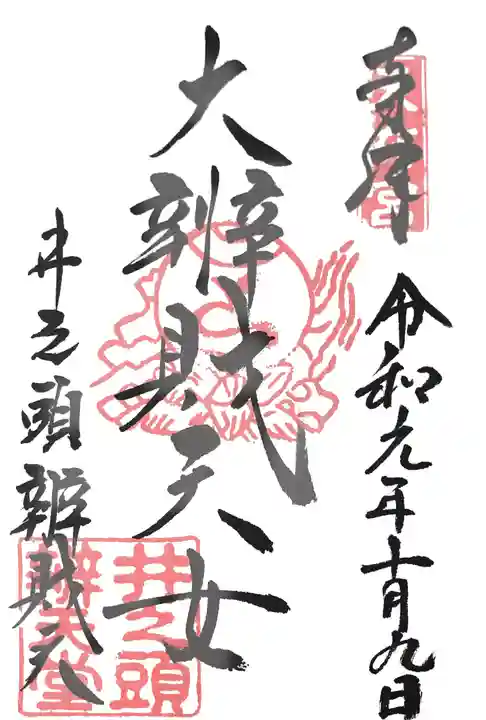 奉拝
令和元年十月九日
大辨財天女
井之頭辨財天
井之頭
辨天堂